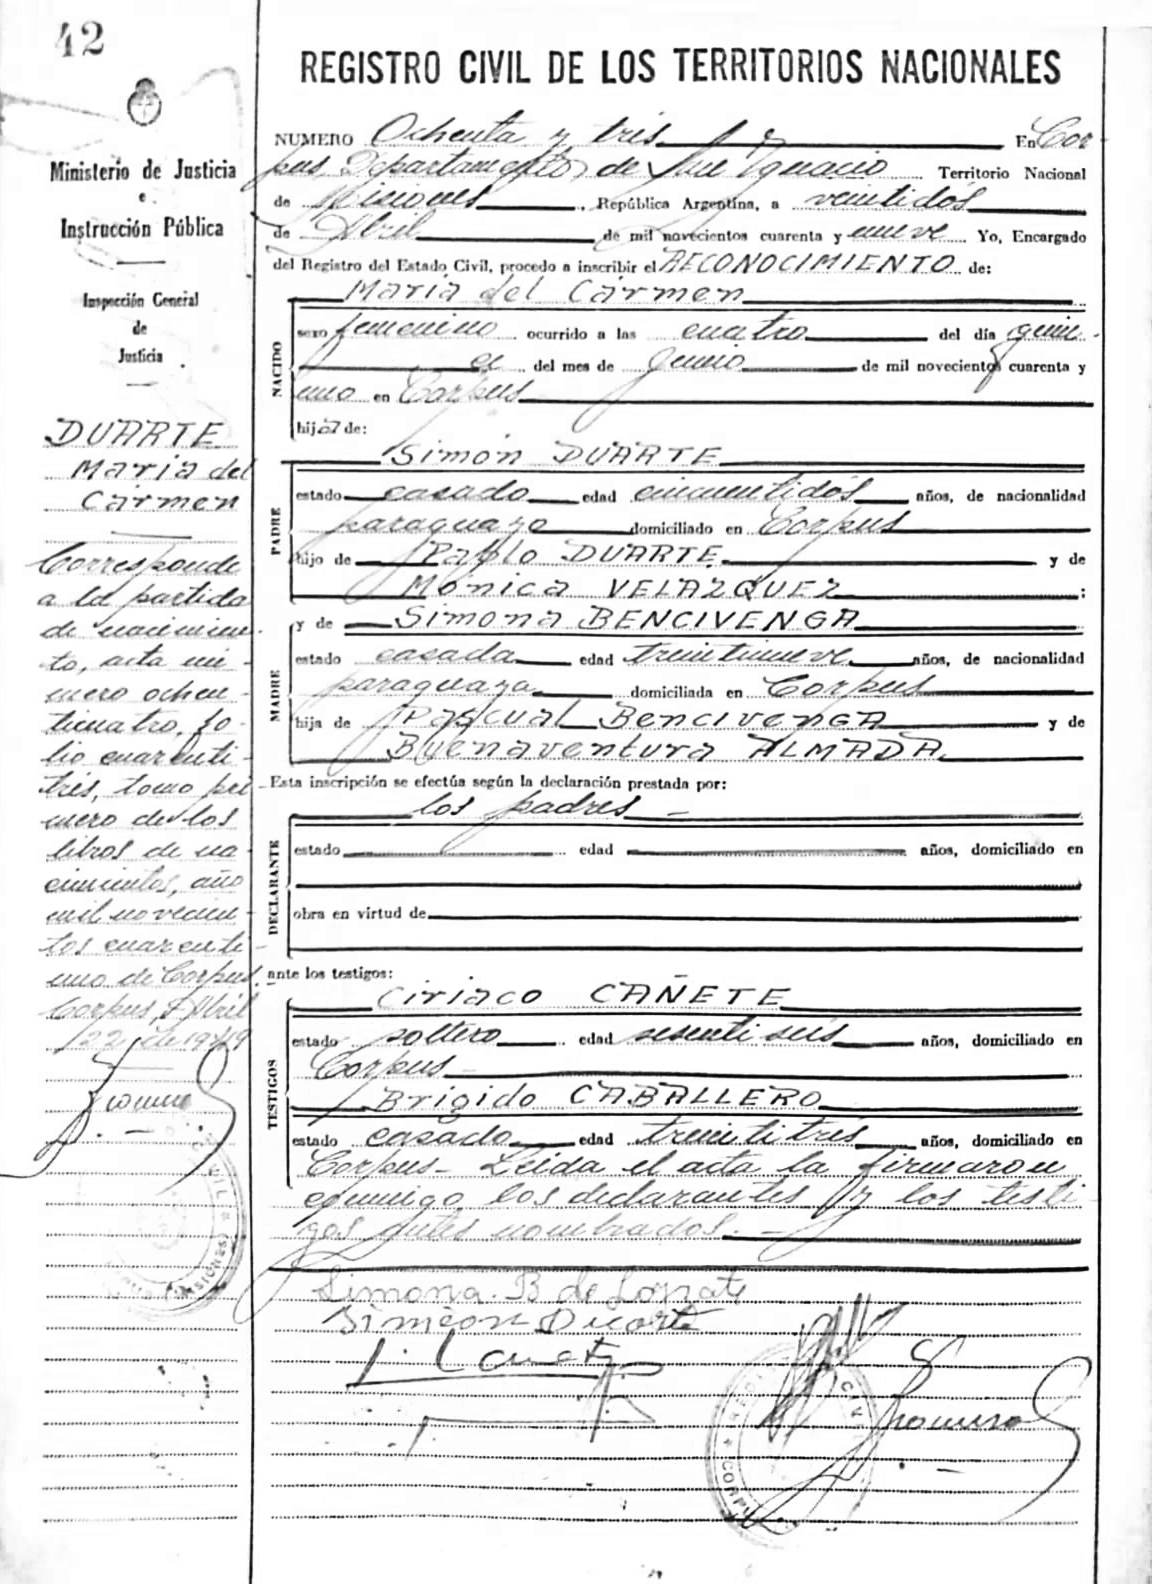 42
Ministerio de Justicia
e
Instrucción Pública
Inspección General
de
Justicia
DUARTE
Maria del
Cármen
Corresponde
a la partida
de nacimien-
to, acta nú-
mero ochen-
ticuatro, fo-
lio cuarenti-
trés, tomo pri-
mero de los
libros de na
cimientos, año
mil novecien-
tos cuarenti-
uno de Corpus.
Corpus, Abril
22 de 1949
REGISTRO CIVIL DE LOS TERRITORIOS NACIONALES
NUMERO Ochenta y trés En Cor-
pus, Departamento de San Ignacio Territorio Nacional
de Misiones, República Argentina, a veintidós
de Abril de mil novecientos cuarenta y nueve Yo, Encargado
del Registro del Estado Civil, procedo a inscribir el RECONOCIMIENTO de:
Maria del Cármen
NACIDO
sexo femenino ocurrido a las cuatro del día quin-
ce del mes de Junio de mil novecientos cuarenta y
uno en Corpus
hija de:
Simón DUARTE
PADRE
estado casado edad cincuentidós años, de nacionalidad
paraguayo domiciliado en Corpus
hijo de Pablo DUARTE y de
Mónica VELAZQUEZ :
y de Simona BENCIVENGA
MADRE
estado casada edad treintinueve años, de nacionalidad
paraguaya domiciliada en Corpus
hija de Pascual BENCIVENGA y de
Buenaventura ALMADA
Esta inscripción se efectúa según la declaración prestada por:
los padres
DECLARANTE
estado edad años, domiciliado en
obra en virtud de
ante los testigos:
Ciriaco CAÑETE
TESTIGOS
estado soltero edad sesentiseis años, domiciliado en
Corpus
Brigido CABALLERO
estado casado edad treintitrés años, domiciliado en
Corpus- Leída el acta la firmaron
conmigo los declarantes y los testi-
gos antes nombrados.-
Simona B de
Simeon Duarte